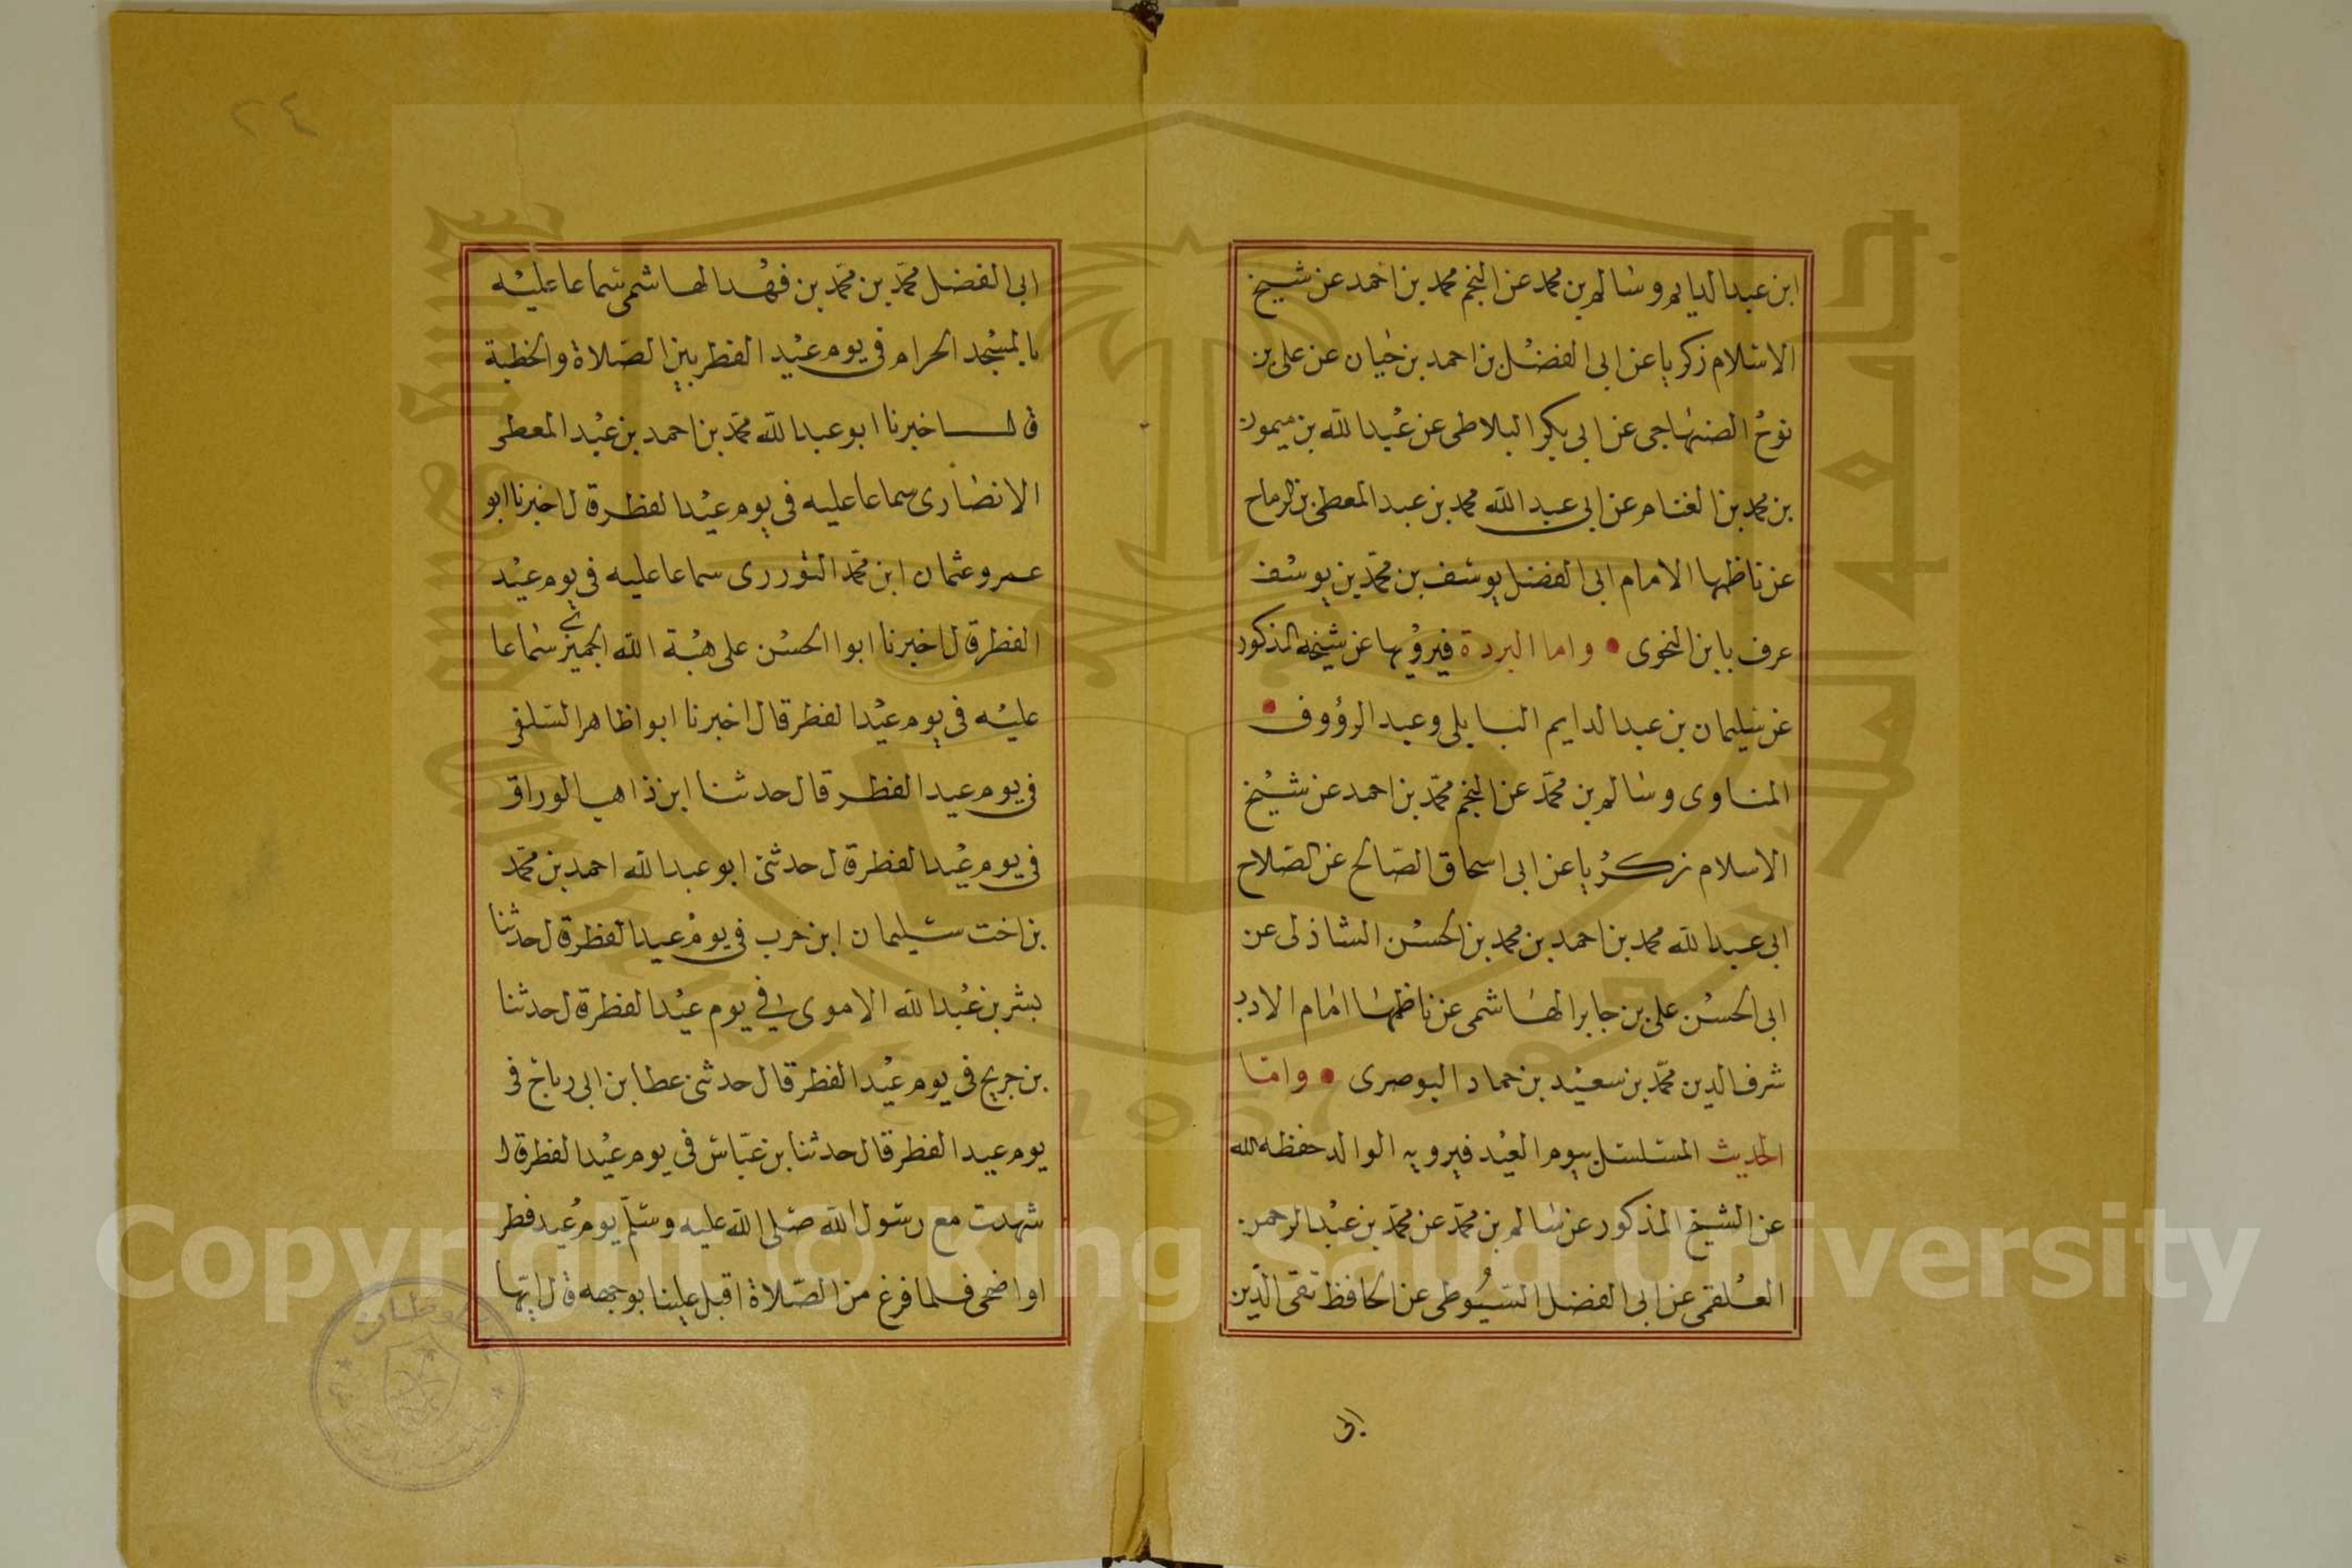 ابن عبد الدايم وسالم بن محمد عن النجم محمد بن احمد عن شيخ
الاسلام زكريا عن ابى الفضل بن احمد بن حيان عن على بن
نوح الصنهاجى عن ابى بكر البلاطى عن عبد الله بن ميمون
بن محمد بن الغنام عن ابى عبد الله محمد بن عبد المعطى بن الرماح
عن ناظمها الامام ابى الفضل يوسف بن محمد بن يوسف
عرف بابن النحوى • واما البردة فيرويها عن شيخه المذكور
عن سليمان بن عبد الدايم البابلى وعبد الرؤوف •
المناوى وسالم بن محمد عن النجم محمد بن احمد عن شيخ
الاسلام زكريا عن ابى اسحاق الصالح عن الصلاح
ابى عبد الله محمد بن احمد بن محمد بن الحسن الشاذلى عن
ابى الحسن على بن جابر الهاشمى عن ناظمها امام الادب
شرف الدين محمد بن سعيد بن حماد البوصرى • واما
الحديث المسلسل بيوم العيد فيرويه الوالد حفظه الله
عن الشيخ المذكور عن سالم بن محمد عن محمد بن عبد الرحمن
العلقمى عن ابى الفضل السيوطى عن الحافظ تقى الدين
ابى
٢٤
ابى الفضل محمد بن محمد بن فهد الهاشمى سماعا عليه
بالمسجد الحرام فى يوم عيد الفطر بين الصلاة والخطبة
قال اخبرنا ابو عبد الله محمد بن احمد بن عبد المعطى
الانصارى سماعا عليه فى يوم عيد الفطر قال اخبرنا ابو
عمرو عثمان ابن محمد التوررى سماعا عليه فى يوم عيد
الفطر قال اخبرنا ابوا الحسن على هبة الله الجميزى سماعا
عليه فى يوم عيد الفطر قال اخبرنا ابوا ظاهر السلفى
فى يوم عيد الفطر قال حدثنا ابن ذاهب الوراق
فى يوم عيد الفطر قال حدثنى ابو عبد الله احمد بن محمد
بن اخت سليمان ابن حرب فى يوم عيد الفطر قال حدثنا
بشر بن عبد الله الاموى فى يوم عيد الفطر قال حدثنا
بن جريج فى يوم عيد الفطر قال حدثنى عطا بن ابى رباح فى
يوم عيد الفطر قال حدثنا بن عباس فى يوم عيد الفطر قال
شهدت مع رسول الله صلى الله عليه وسلم يوم عيد فطر
او اضحى فلما فرغ من الصلاة اقبل علينا بوجهه قال ايها
Copyright © King Saud University
1957